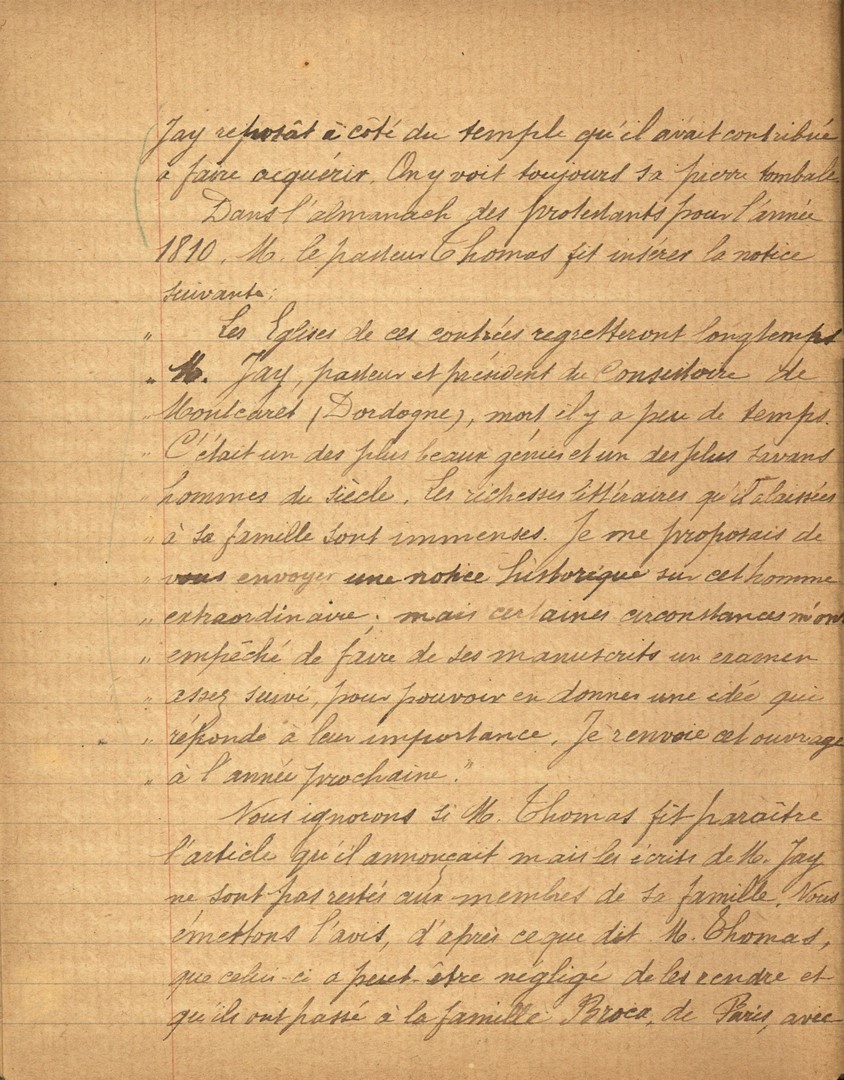 Jay reposât à côté du temple qu'il avait contribué
à faire acquérir. On y voit toujours sa pierre tombale.
Dans l'almanach des protestants pour l'année
1810, M. le pasteur Thomas fit insérer la notice
suivante:
" Les Eglises de ces contrées regretteront longtemps
" M. Jay, pasteur et président du Consistoire de
" Montcaret (Dordogne), mort il y a peu de temps.
" C'était un des plus beaux génies et un des plus savans
" hommes du siècle. Les richesses littéraires qu'il a laissées
" à sa famille sont immenses. Je me proposais de
" vous envoyer une notice historique sur cet homme
" extraordinaire; mais certaines circonstances m'ont
" empêché de faire de ses manuscrits un examen
" assez suivi, pour pouvoir en donner une idée qui
" réponde à leur importance. Je renvoie cet ouvrage
" à l'année prochaine."
Nous ignorons si M. Thomas fit paraître
l'article qu'il annonçait mais les écrits de M. Jay
ne sont pas restés aux membres de sa famille. Nous
émettons l'avis, d'après ce que dit M. Thomas,
que celui-ci a peut-être négligé de les rendre et
qu'ils ont passé à la famille Broca, de Paris, avec